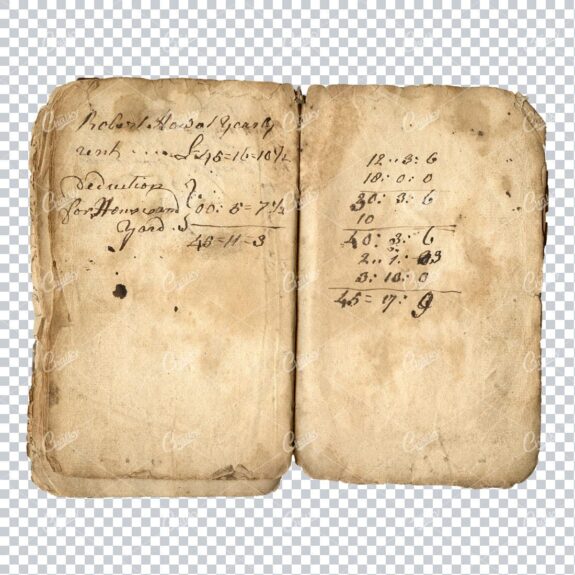 Robert Howat Yearly
rent ..... £45=16=10½
deduction
for House and } 00: 5=7½
Yard
45=11=3
12..3:6
18:0:0
30:3:6
10
40:3:6
2..1:
3:13:0
45=17:9